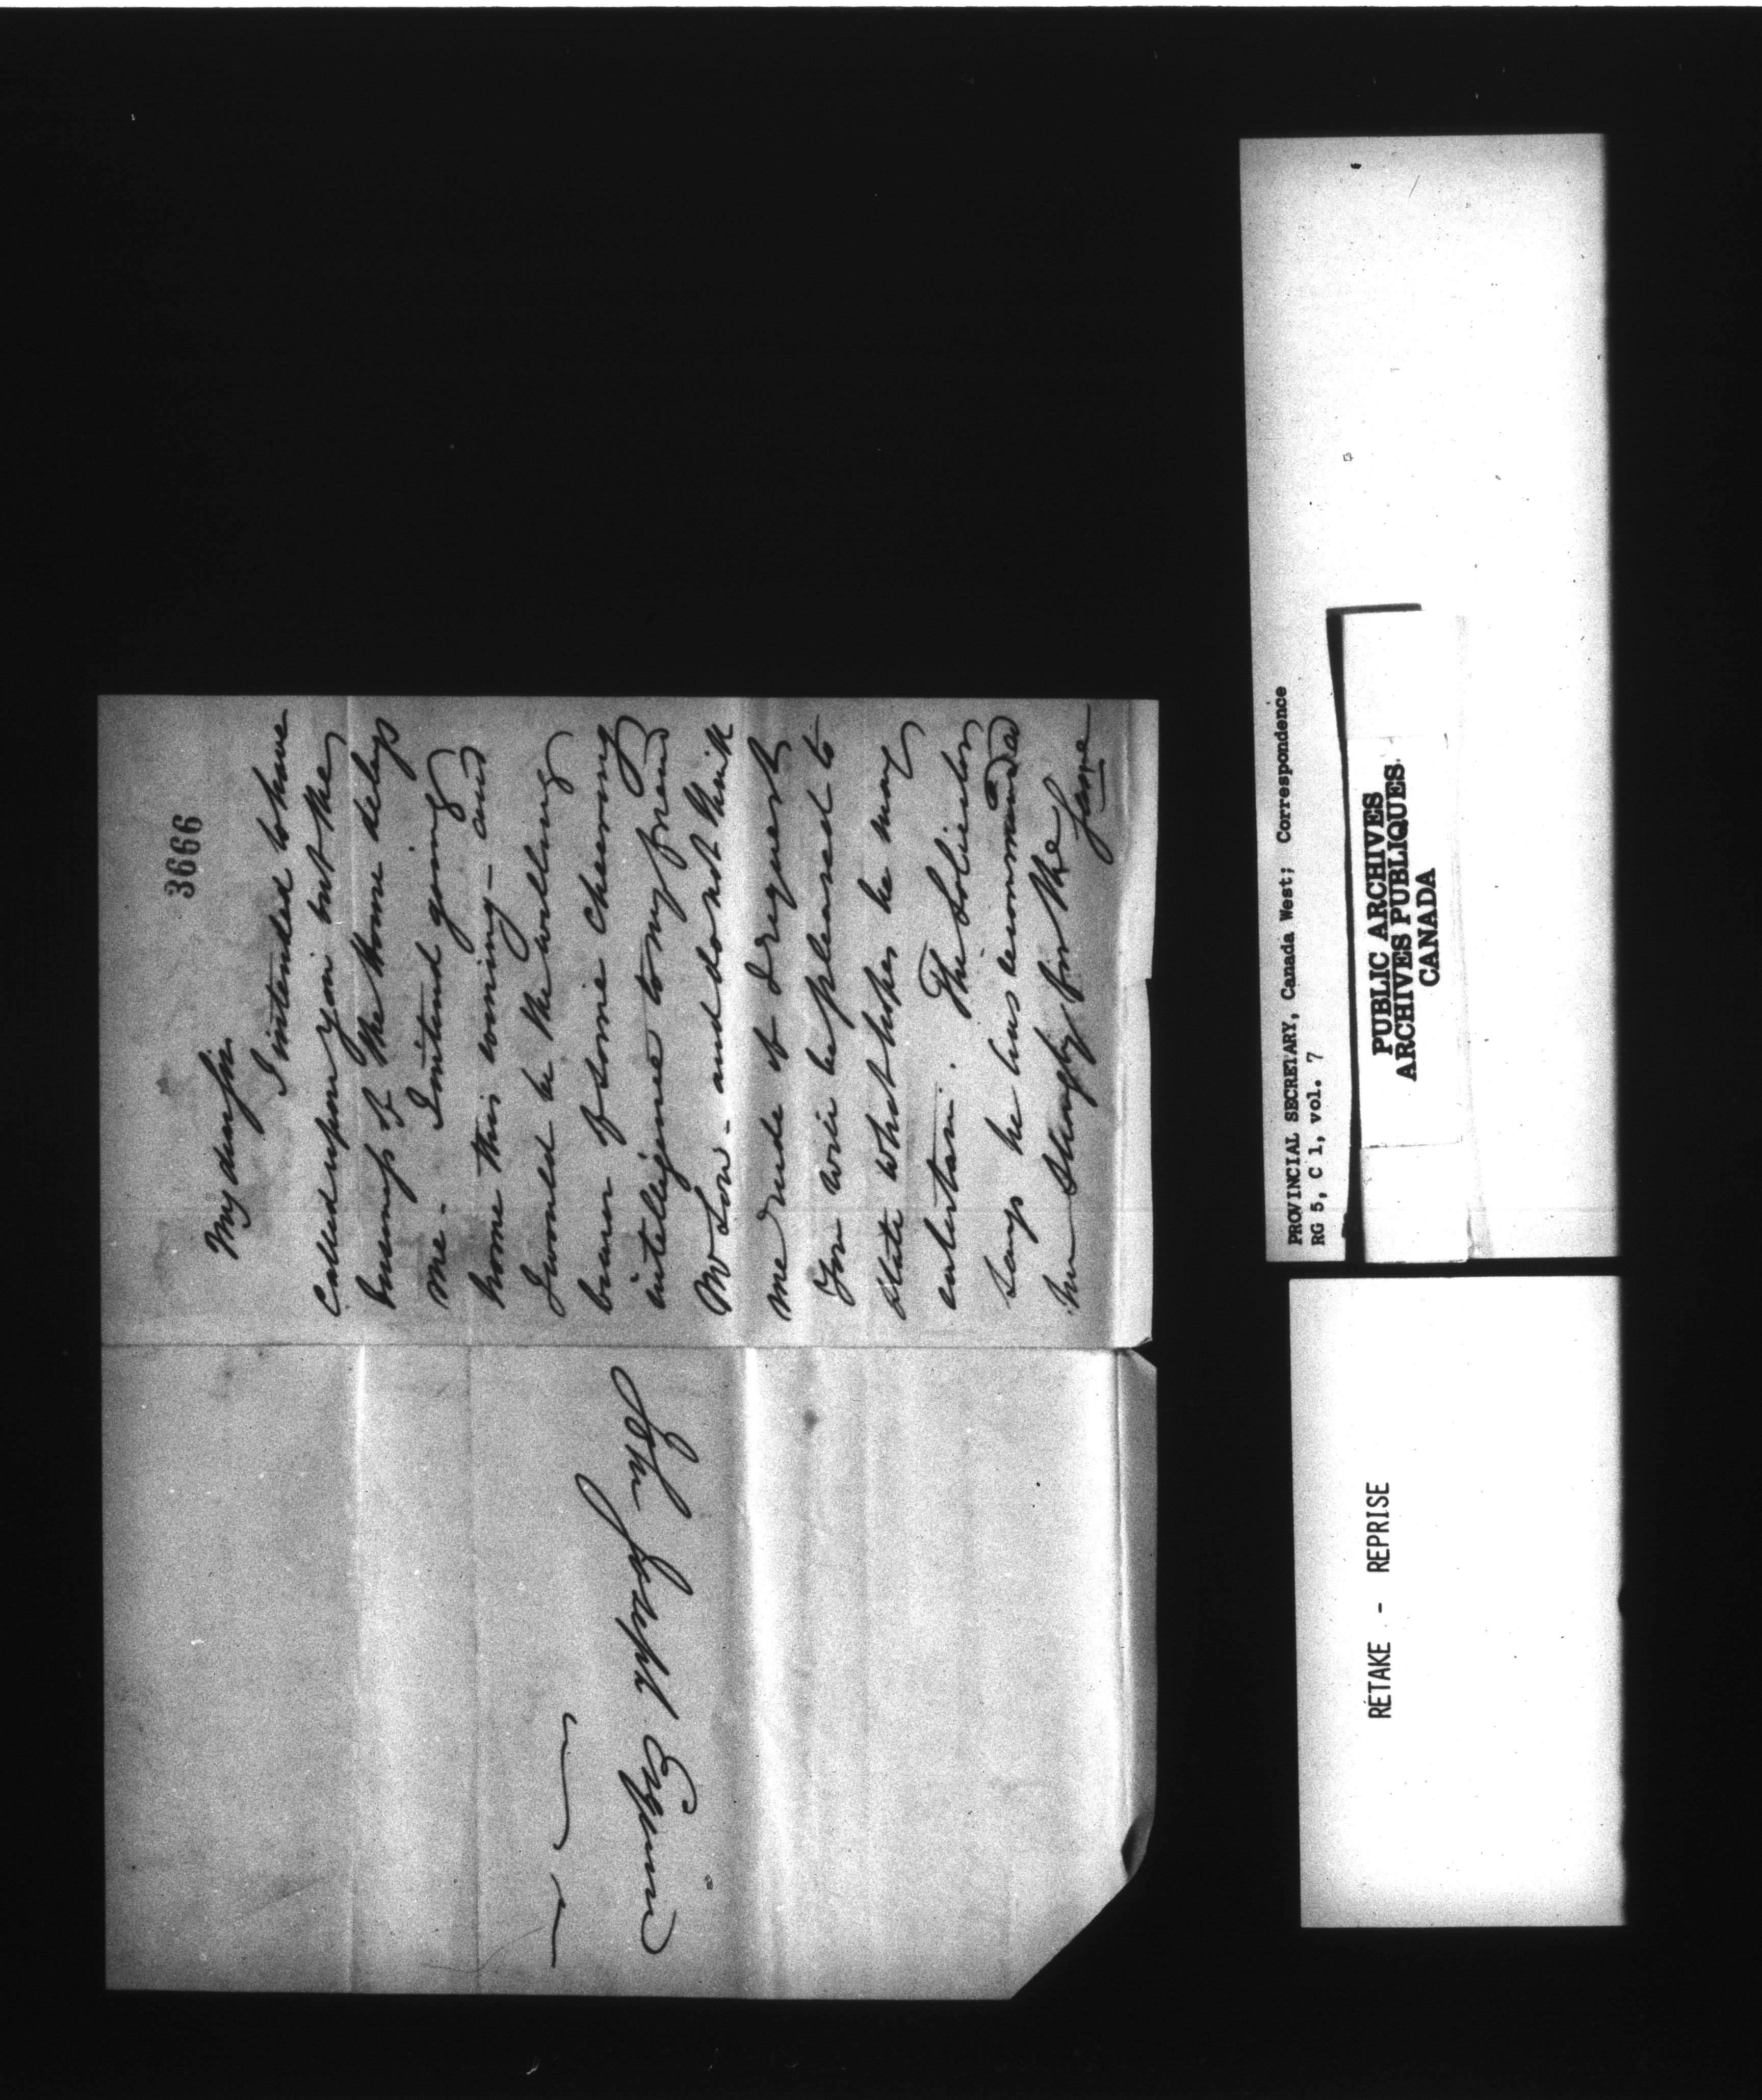 3666
My dear Sir
I intended to have
called upon you but the
business of the House delays
me. I intend going
home this evening - and
I would be the willing
bearer of some cheering
intelligence to my friend
Mr Low - and do not think
me rude if I request
You will be pleased to
state what hopes he may
entertain. The Solicitor
says he has recommended
him strongly for the same
John Joseph Esquire
PROVINCIAL SECRETARY, Canada West; Correspondence
RG 5, C 1, vol. 7
PUBLIC ARCHIVES
ARCHIVES PUBLIQUES
CANADA
RETAKE - REPRISE